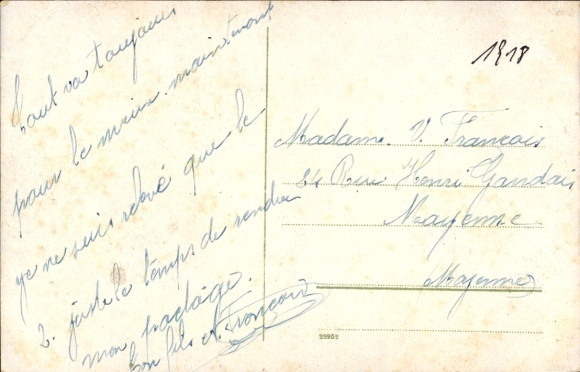 Tout va toujours
pour le mieux maintenant
je ne suis relevé que le
2. juste le temps de rendre
mon pactage.
Ton fils A. François
1918
Madame V. François
24 Rue Henri Gandais
Mayenne
Mayenne